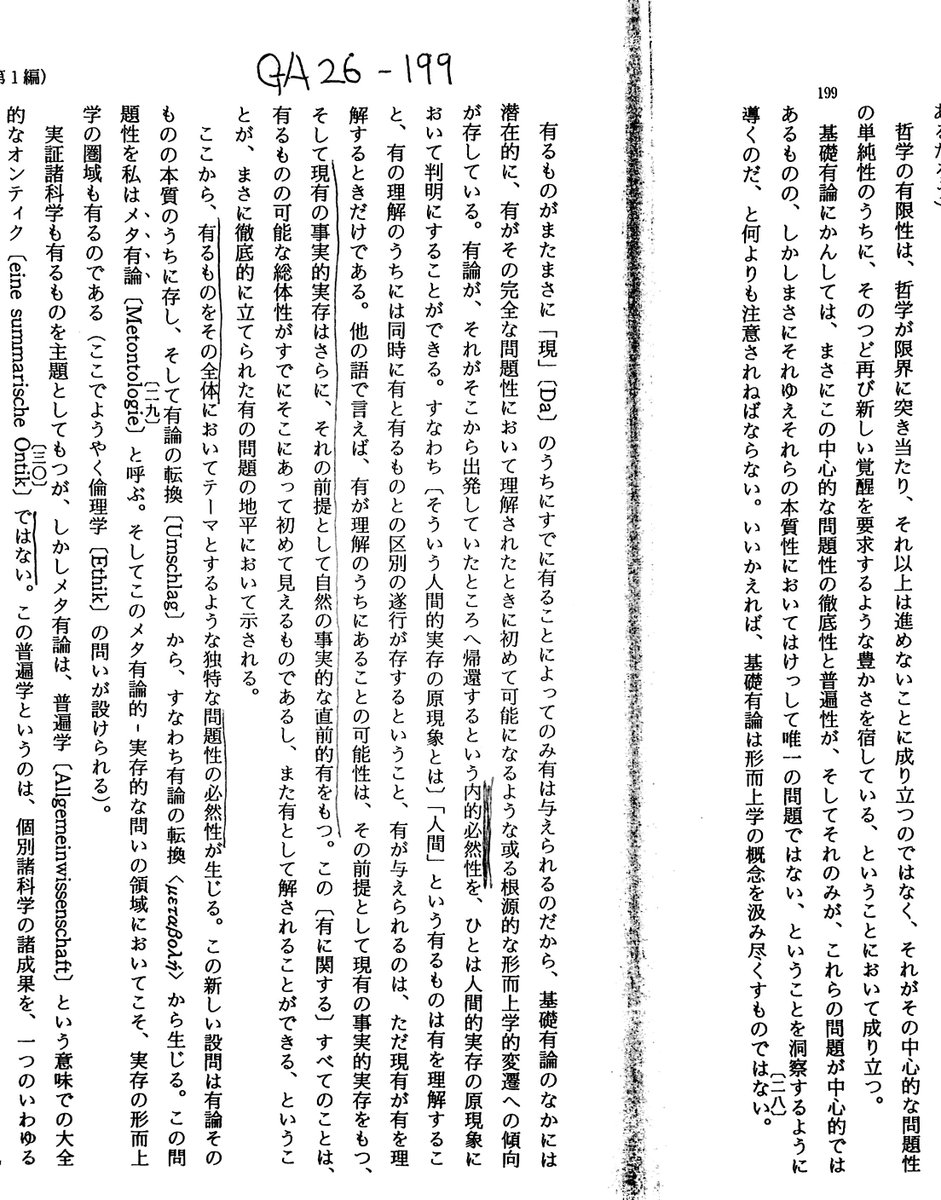 199
哲学の有限性は、哲学が限界に突き当たり、それ以上は進めないことに成り立つのではなく、それがその中心的な問題性
の単純性のうちに、そのつど再び新しい覚醒を要求するような豊かさを宿している、ということにおいて成り立つ。
基礎有論にかんしては、まさにこの中心的な問題性の徹底性と普遍性が、そしてそれのみが、これらの問題が中心的では
あるものの、しかしまさにそれゆえそれらの本質性においてはけっして唯一の問題ではない、ということを洞察するように
〔二八〕
導くのだ、と何よりも注意されねばならない。いいかえれば、基礎有論は形而上学の概念を汲み尽くすものではない。
GA26-199
第1編)
有るものがまたまさに「現」〔Da〕のうちにすでに有ることによってのみ有は与えられるのだから、基礎有論のなかには
潜在的に、有がその完全な問題性において理解されたときに初めて可能になるような或る根源的な形而上学的変遷への傾向
が存している。有論が、それがそこから出発していたところへ帰還するという内的必然性を、ひとは人間的実存の原現象に
おいて判明にすることができる。すなわち〔そういう人間的実存の原現象とは〕「人間」という有るものは有を理解するこ
と、有の理解のうちには同時に有と有るものとの区別の遂行が存するということ、有が与えられるのは、ただ現有が有を理
解するときだけである。他の語で言えば、有が理解のうちにあることの可能性は、その前提として現有の事実的実存をもつ、
そして現有の事実的実存はさらに、それの前提として自然の事実的な直前的有をもつ。この〔有に関する〕すべてのことは、
有るものの可能な総体性がすでにそこにあって初めて見えるものであるし、また有として解されることができる、というこ
とが、まさに徹底的に立てられた有の問題の地平において示される。
ここから、有るものをその全体においてテーマとするような独特な問題性の必然性が生じる。この新しい設問は有論その
ものの本質のうちに存し、そして有論の転換〔Umschlag〕から、すなわち有論の転換〈μεταβολή〉から生じる。この問
〔二九〕
題性を私はメタ有論〔Metontologie〕と呼ぶ。そしてこのメタ有論的-実存的な問いの領域においてこそ、実存の形而上
学の圏域も有るのである（ここでようやく倫理学〔Ethik〕の問いが設けられる）。
実証諸科学も有るものを主題としてもつが、しかしメタ有論は、普遍学〔Allgemeinwissenschaft〕という意味での大全
〔三〇〕
的なオンティク〔eine summarische Ontik〕ではない。この普遍学というのは、個別諸科学の諸成果を、一つのいわゆる